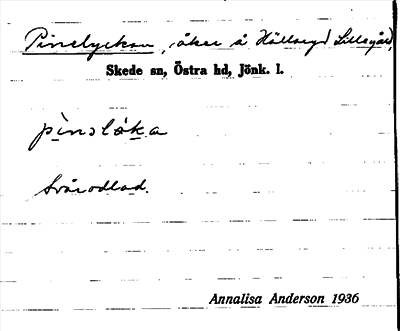 Pinelyckan, åker å Hällaryd Lillegård,
Skede sn, Östra hd, Jönk. l.
pìnslø̀ka
Svårodlad.
Annalisa Anderson 1936